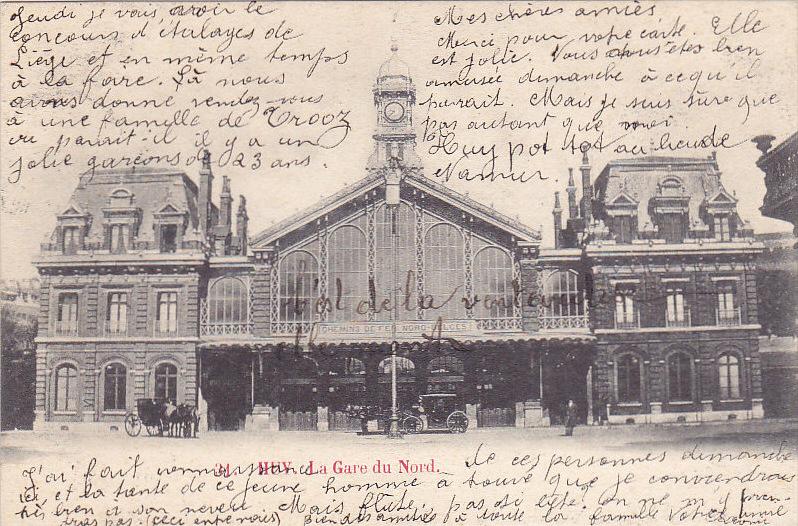 Mes chères amies
Merci pour votre carte. Elle
est jolie. Vous vous êtes bien
amusée dimanche à ce qu'il
parait. Mais je suis sûre que
pas autant que moi.
Huy pot tot au lieu de
Namur.
Jeudi je vais voir le
concours d'étalages de
Liége et en même temps
à la foire. Là nous
avons donné rendez-vous
à une famille de Trooz
ou parait il il y a un
jolie garçons de 23 ans.
CHEMINS DE FER NORD-BELGES
c'est de la
31. HUY. La Gare du Nord.
J'ai fait connaissance de ces personnes dimanche
ici, et la tante de ce jeune homme a trouvé que je conviendrais
très bien à son neveu. Mais flûte, pas si bête! On ne m'y pren-
dras pas (ceci entre nous) Bien des amitiés à toute la famille Votre amie